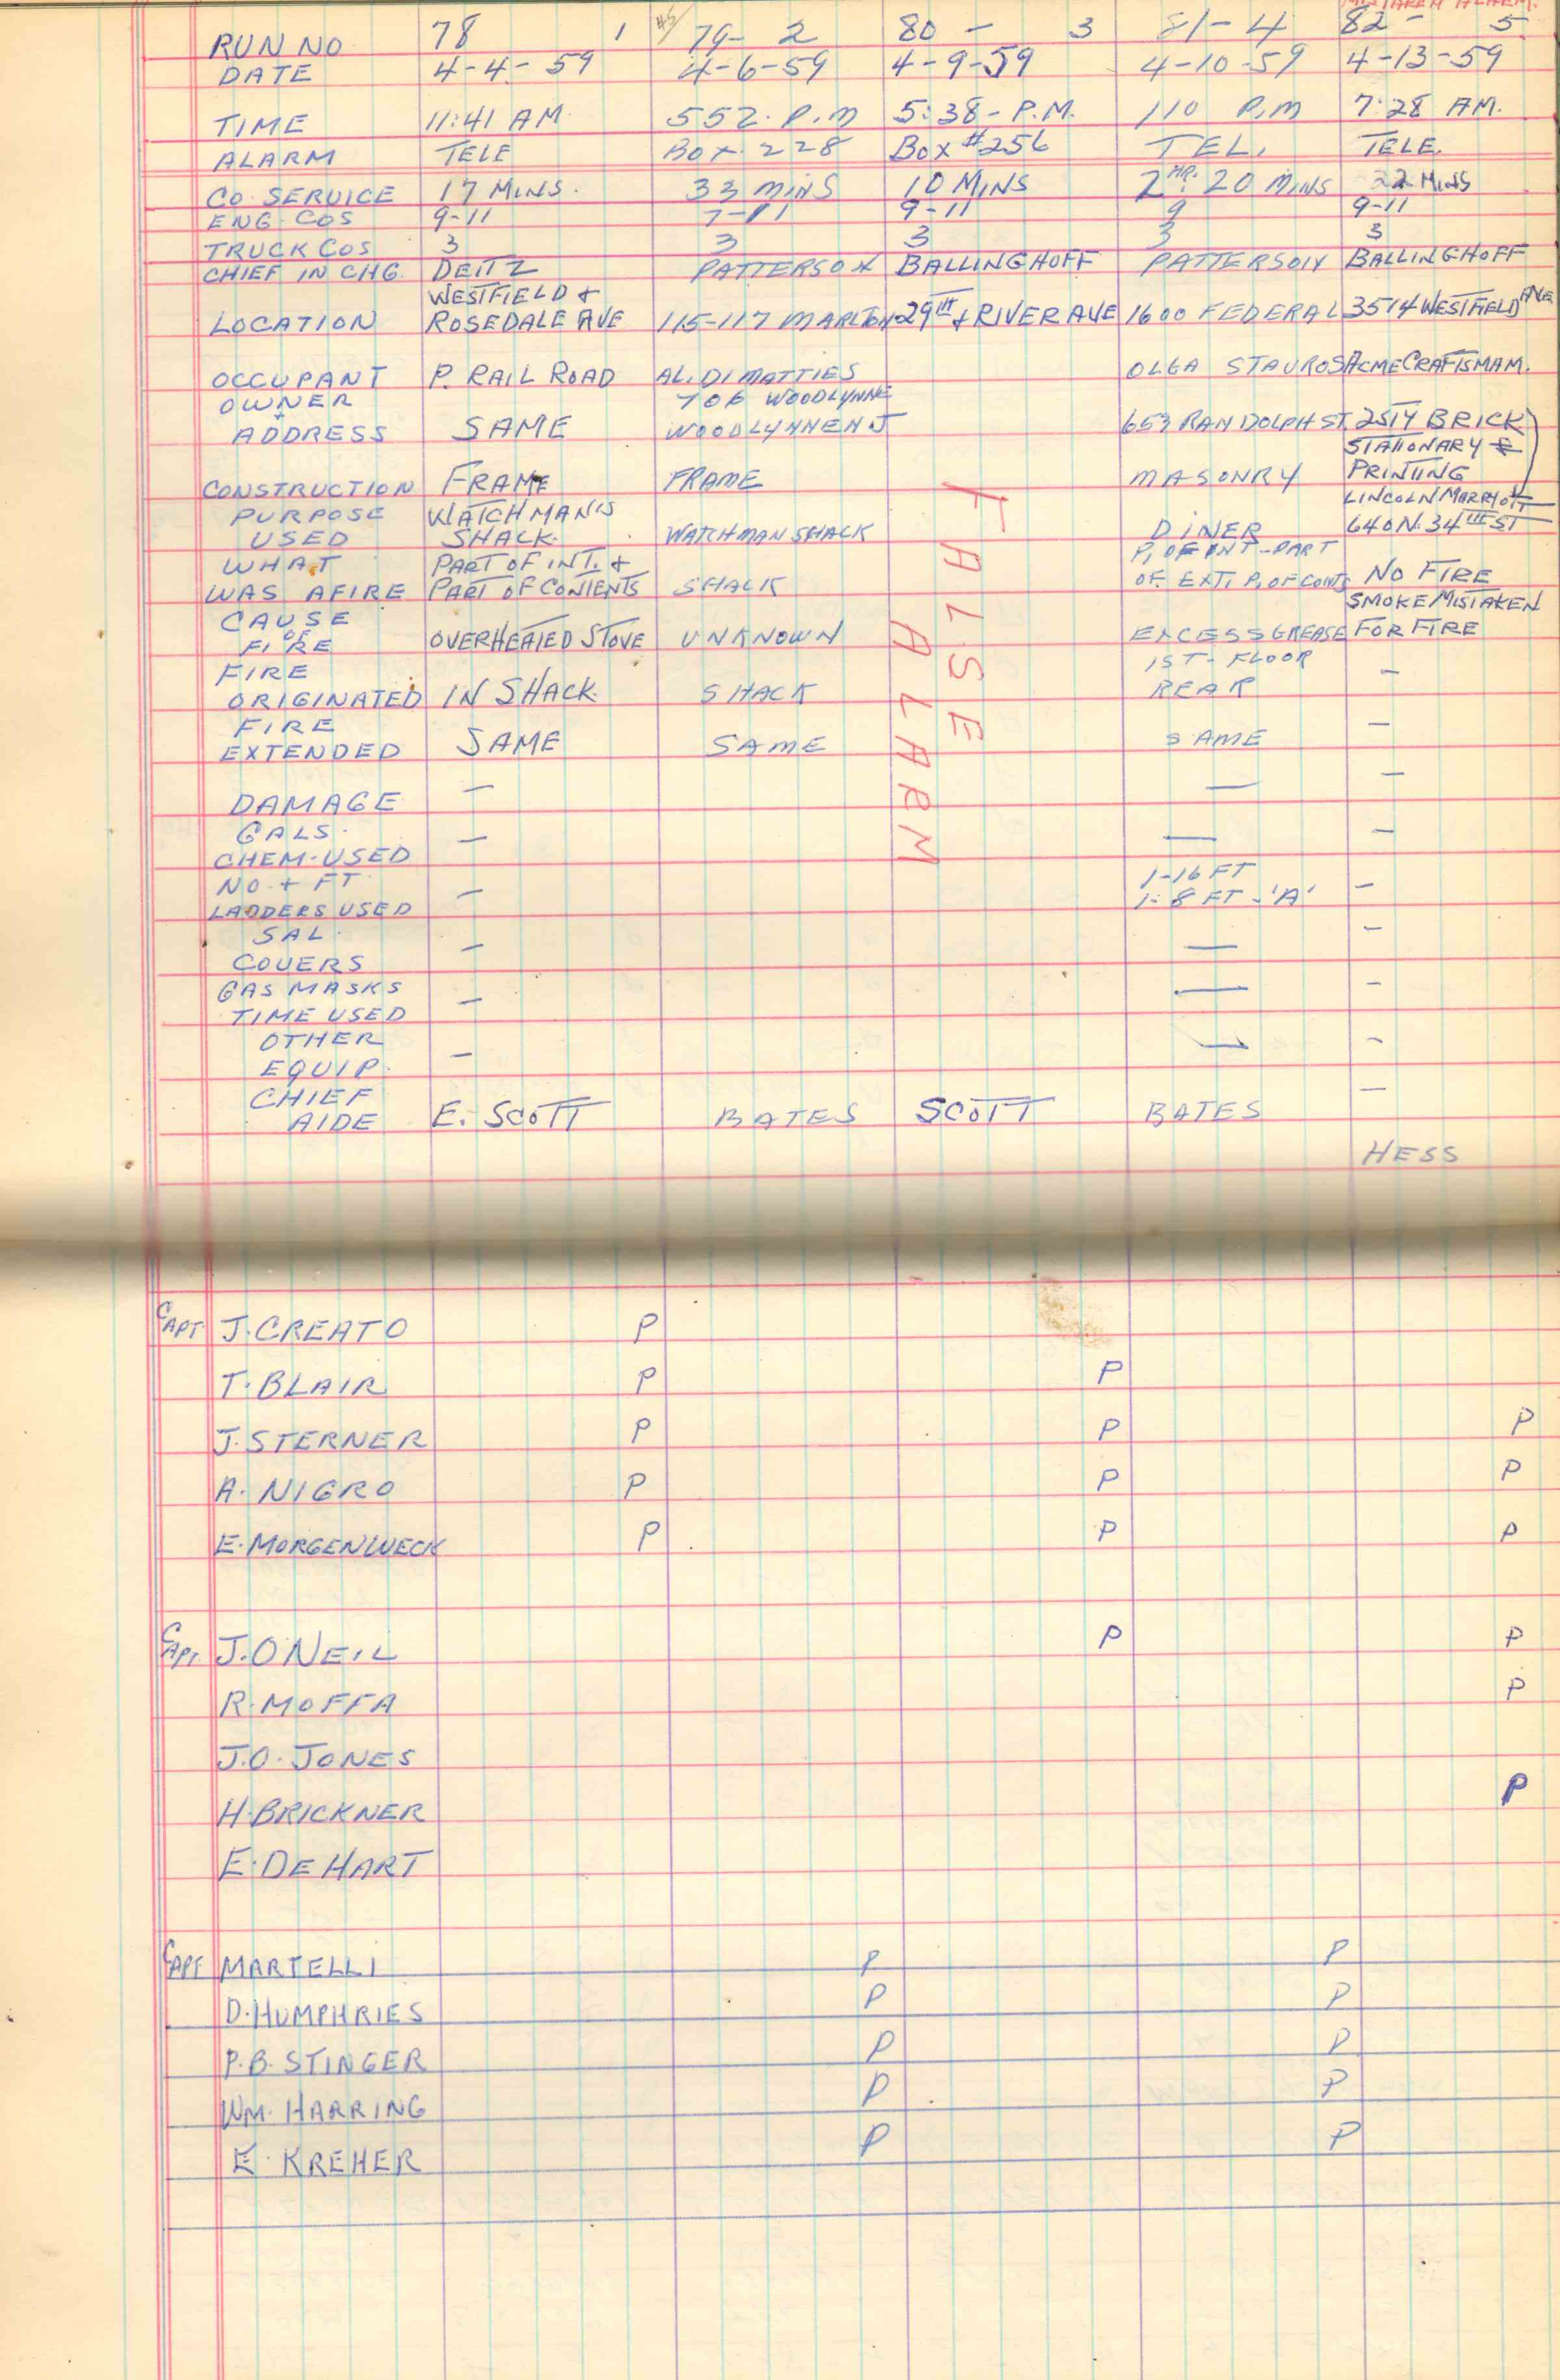 MISTAKEN ALARM.
RUN NO 78 1 #5/ 79- 2 80 - 3 81-4 82- 5
DATE 4-4-59 4-6-59 4-9-59 4-10-59 4-13-59
TIME 11:41 AM. 552. P.M 5:38-P.M. 110 P.M 7:28 AM.
ALARM TELE BOX 228 BOX #256 TEL. TELE.
CO SERVICE 17 MINS. 33 MINS 10 MINS 2 HR. 20 MINS 22 MINS
ENG COS 9-11 7-11 9-11 9 9-11
TRUCK COS 3 3 3 3 3
CHIEF IN CHG. DEITZ PATTERSON BALLINGHOFF PATTERSON BALLINGHOFF
WESTFIELD +
LOCATION ROSEDALE AVE 115-117 MARLTON 29TH + RIVER AVE 1600 FEDERAL 3514 WESTFIELD AVE
OCCUPANT P. RAIL ROAD AL. DI MATTIES OLGA STAUROS ACME CRAFTSMAM.
OWNER 706 WOODLYNNE
+
ADDRESS SAME WOODLYNNE N J 653 RANDOLPH ST. 2STY BRICK
STATIONARY &
CONSTRUCTION FRAME FRAME MASONRY PRINTING
PURPOSE WATCHMAN'S LINCOLN MARRYOTT
USED SHACK. WATCHMAN SHACK DINER 640 N. 34TH ST
WHAT PART OF INT. + P. OF INT-PART
WAS AFIRE PART OF CONTENTS SHACK OF EXT. P. OF CONTS NO FIRE
CAUSE SMOKE MISTAKEN
OF
FIRE OVERHEATED STOVE UNKNOWN EXCESS GREASE FOR FIRE
FIRE 1ST-FLOOR
ORIGINATED IN SHACK. SHACK REAR -
FIRE
EXTENDED SAME SAME SAME -
FALSE
ALARM
DAMAGE - - -
GALS.
CHEM-USED - - -
NO. + FT 1-16 FT
LADDERS USED - 1-8 FT-'A' -
SAL.
COVERS - - -
GAS MASKS
TIME USED - - -
OTHER
EQUIP. - - -
CHIEF -
AIDE E. SCOTT BATES SCOTT BATES
HESS
CAPT J. CREATO P
T. BLAIR P P
J. STERNER P P P
A. NIGRO P P P
E. MORGENWECK P P P
CAPT. J. ONEIL P P
R. MOFFA P
J.O. JONES
H. BRICKNER P
E. DEHART
CAPT MARTELLI P P
D. HUMPHRIES P P
P.B. STINGER P P
WM. HARRING P P
E. KREHER P P